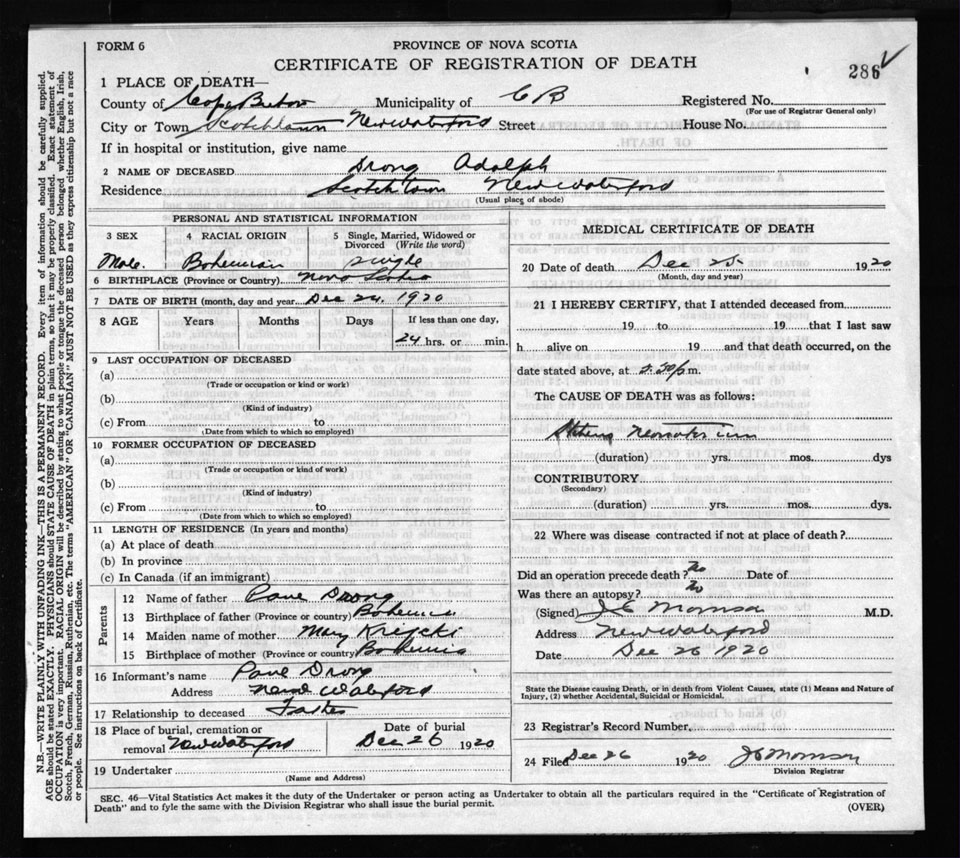 FORM 6
PROVINCE OF NOVA SCOTIA
CERTIFICATE OF REGISTRATION OF DEATH
286
1 PLACE OF DEATH—
County of Cape Breton Municipality of C B Registered No.
(For use of Registrar General only)
City or Town Scotchtown New Waterford Street House No.
If in hospital or institution, give name
2 NAME OF DECEASED Drong Adolph
Residence Scotchtown New Waterford
(Usual place of abode)
PERSONAL AND STATISTICAL INFORMATION
3 SEX 4 RACIAL ORIGIN 5 Single, Married, Widowed or Divorced (Write the word)
Male. Bohemian Single
6 BIRTHPLACE (Province or Country) Nova Scotia
7 DATE OF BIRTH (month, day and year) Dec 24, 1920
8 AGE Years Months Days If less than one day,
24 hrs. or min.
9 LAST OCCUPATION OF DECEASED
(a)
(Trade or occupation or kind or work)
(b)
(Kind of industry)
(c) From to
(Date from which to which so employed)
10 FORMER OCCUPATION OF DECEASED
(a)
(Trade or occupation or kind of work)
(b)
(Kind of industry)
(c) From to
(Date from which to which so employed)
11 LENGTH OF RESIDENCE (In years and months)
(a) At place of death
(b) In province
(c) In Canada (if an immigrant)
Parents
12 Name of father Drong
13 Birthplace of father (Province or country) Bohemia
14 Maiden name of mother Mary Krejcki
15 Birthplace of mother (Province or country) Bohemia
16 Informant's name Drong
Address New Waterford
17 Relationship to deceased Father
18 Place of burial, cremation or removal New Waterford Date of burial Dec 26 1920
19 Undertaker
(Name and Address)
MEDICAL CERTIFICATE OF DEATH
20 Date of death Dec 25 1920
(Month, day and year)
21 I HEREBY CERTIFY, that I attended deceased from
19 to 19 that I last saw
h alive on 19 and that death occurred, on the
date stated above, at p m.
The CAUSE OF DEATH was as follows:
(duration) yrs. mos. dys
CONTRIBUTORY
(Secondary)
(duration) yrs. mos. dys.
22 Where was disease contracted if not at place of death?
Did an operation precede death? No Date of
Was there an autopsy? No
(Signed) M.D.
Address New Waterford
Date Dec 26 1920
State the Disease causing Death, or in death from Violent Causes, state (1) Means and Nature of
Injury, (2) whether Accidental, Suicidal or Homicidal.
23 Registrar's Record Number.
24 Filed Dec 26 1920
Division Registrar
SEC. 46—Vital Statistics Act makes it the duty of the Undertaker or person acting as Undertaker to obtain all the particulars required in the "Certificate of Registration of
Death" and to fyle the same with the Division Registrar who shall issue the burial permit. (OVER)
N.B.—WRITE PLAINLY WITH UNFADING INK—THIS IS A PERMANENT RECORD. Every item of information should be carefully supplied.
AGE should be stated EXACTLY. PHYSICIANS should STATE CAUSE OF DEATH in plain terms, so that it may be properly classified. Exact statement of
OCCUPATION is very important. RACIAL ORIGIN will be described by stating to what people or tongue the deceased person belonged whether English, Irish,
Scotch, French, German, Russian, Ruthenian, etc. The terms "AMERICAN" OR "CANADIAN" MUST NOT BE USED as they express citizenship but not a race
or people. See instructions on back of Certificate.